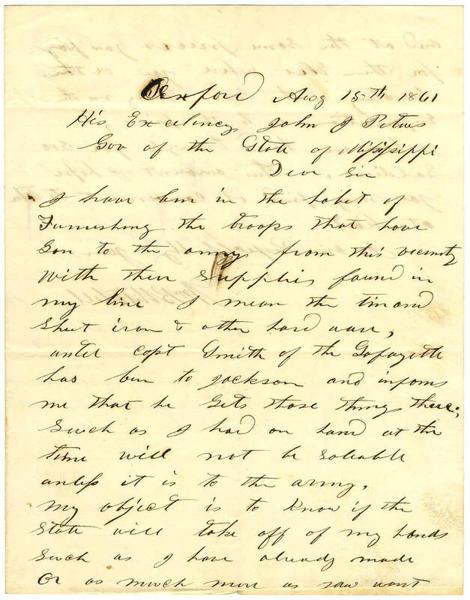 Oxford Aug 15th 1861
His Excelency John J Pettus
Gov of the State of Mississippi
Dear Sir
I have ben in the habit of
Furnishing the troops that have
Gon to the army from this vicinity
With their Supplies found in
my line I mean the tin and
Sheet iron & other hard ware,
until capt Smith of the Lafayette
has ben to Jackson and informs
me that he Gets those things there,
Such as I had on hand at the
time will not be Saleable
unless it is to the army,
my object is to Know if the
State will take off of my hands
Such as I have already made
Or as much more as you want